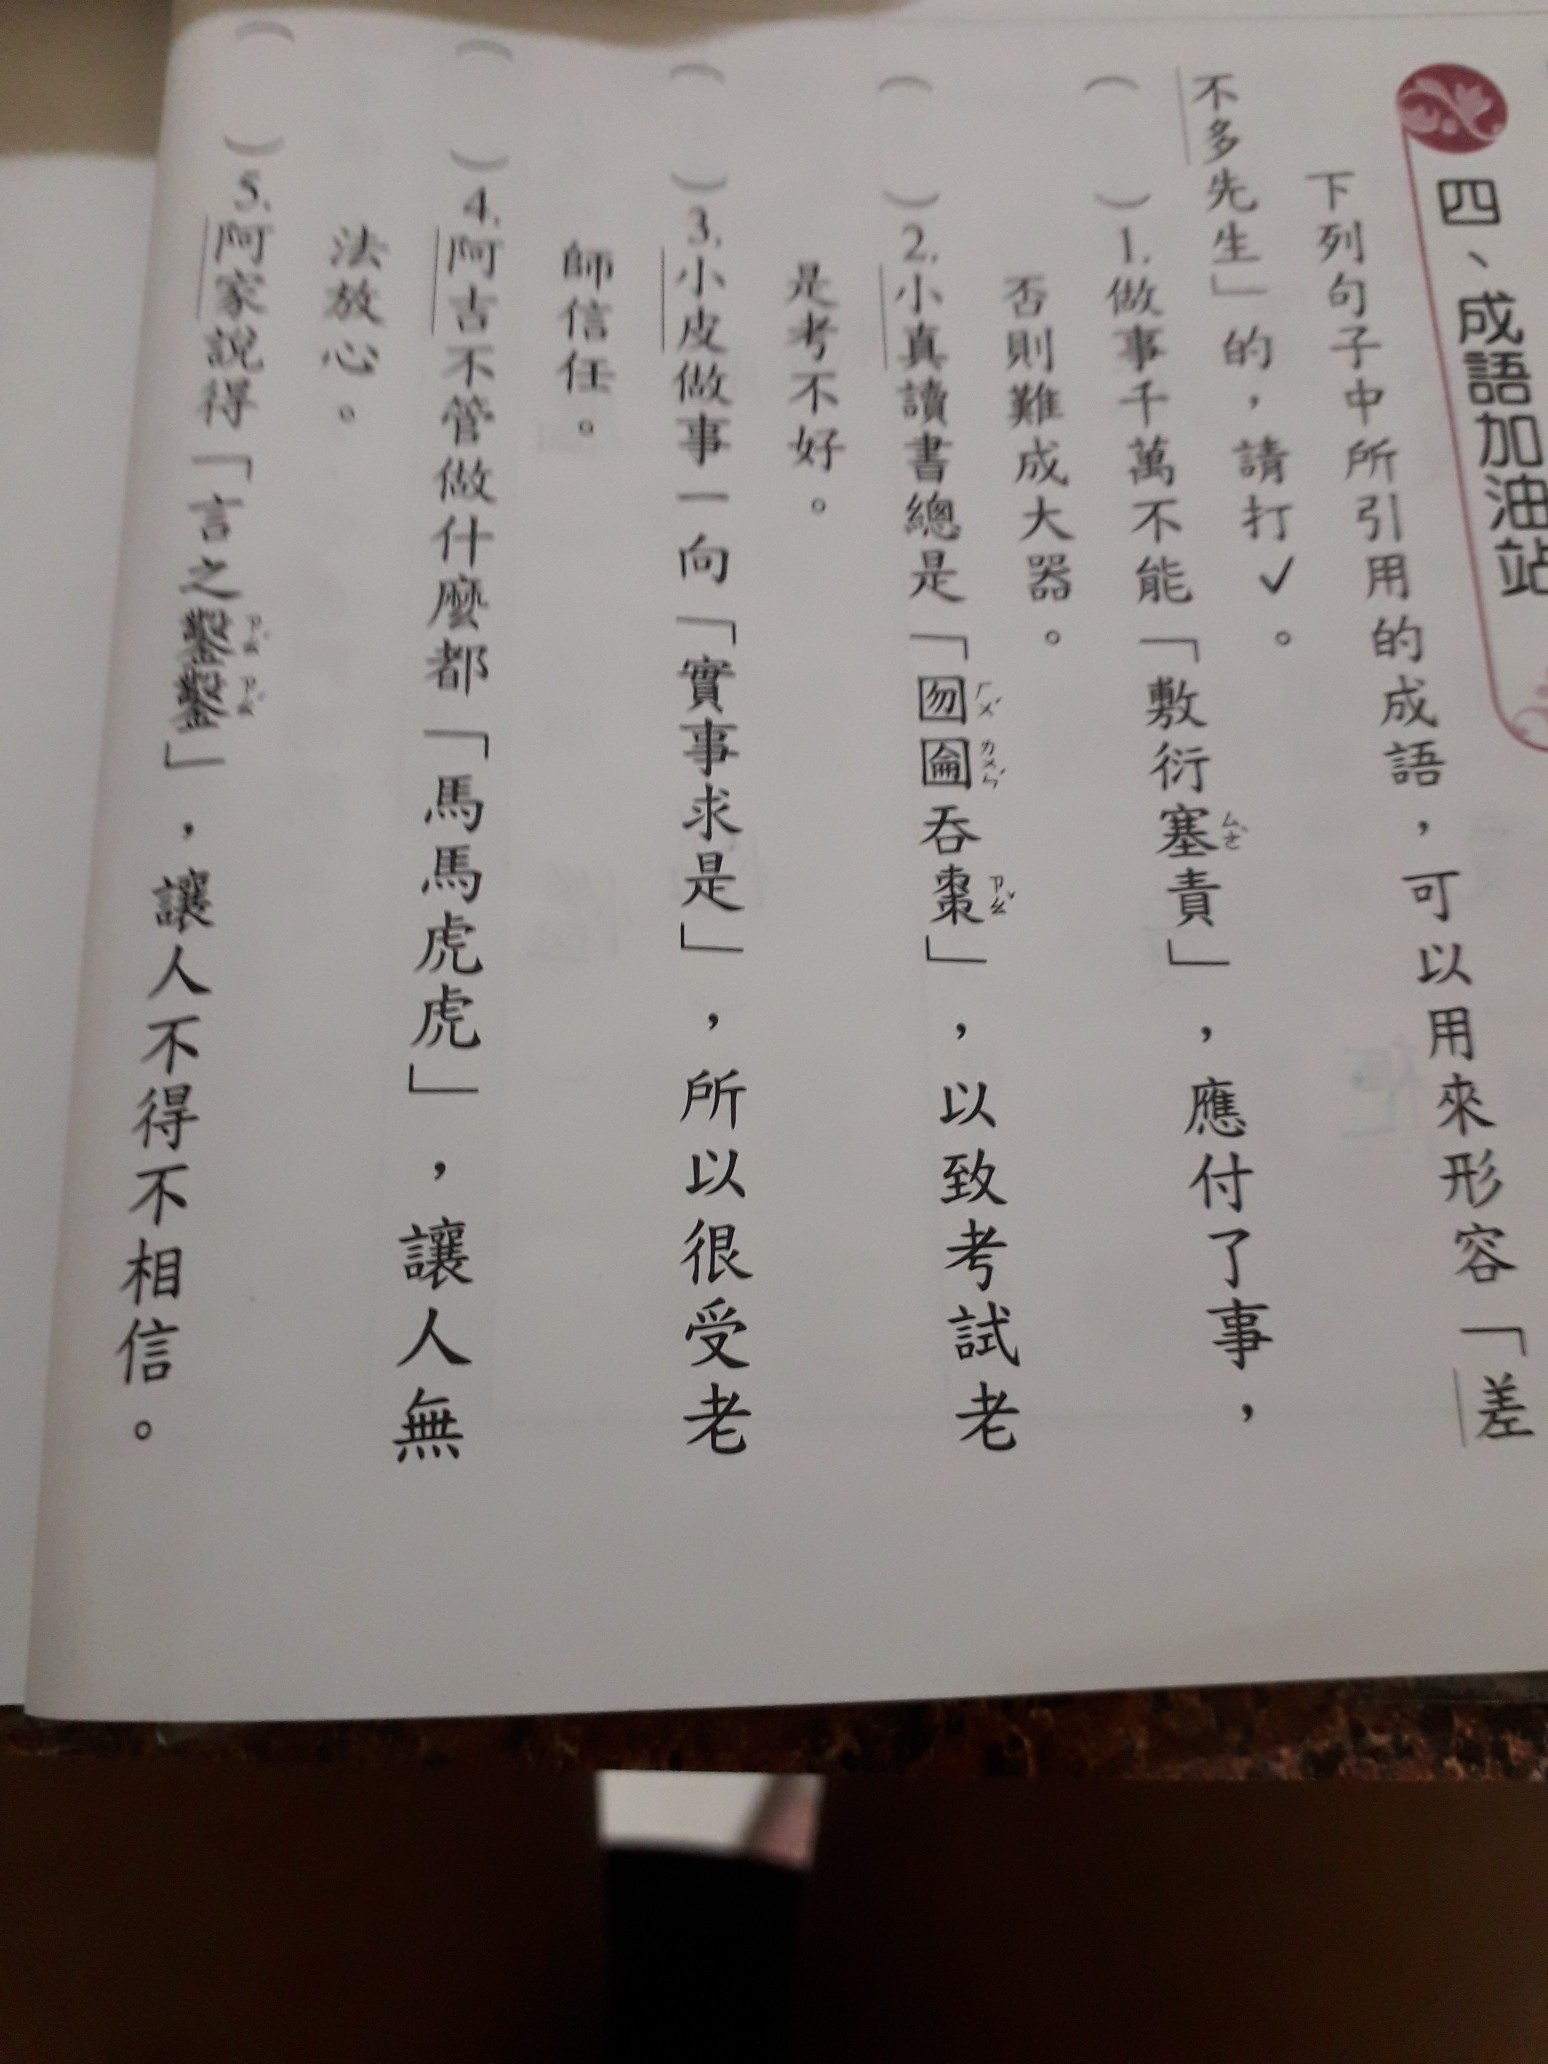 四、成語加油站
下列句子中所引用的成語，可以用來形容「差
不多先生」的，請打✓。
（　）1.做事千萬不能「敷衍塞ㄙㄜˋ責」，應付了事，
否則難成大器。
（　）2.小真讀書總是「囫ㄏㄨˊ圇ㄌㄨㄣˊ吞棗ㄗㄠˇ」，以致考試老
是考不好。
（　）3.小皮做事一向「實事求是」，所以很受老
師信任。
（　）4.阿吉不管做什麼都「馬馬虎虎」，讓人無
法放心。
（　）5.阿家說得「言之鑿ㄗㄠˊ鑿ㄗㄠˊ」，讓人不得不相信。